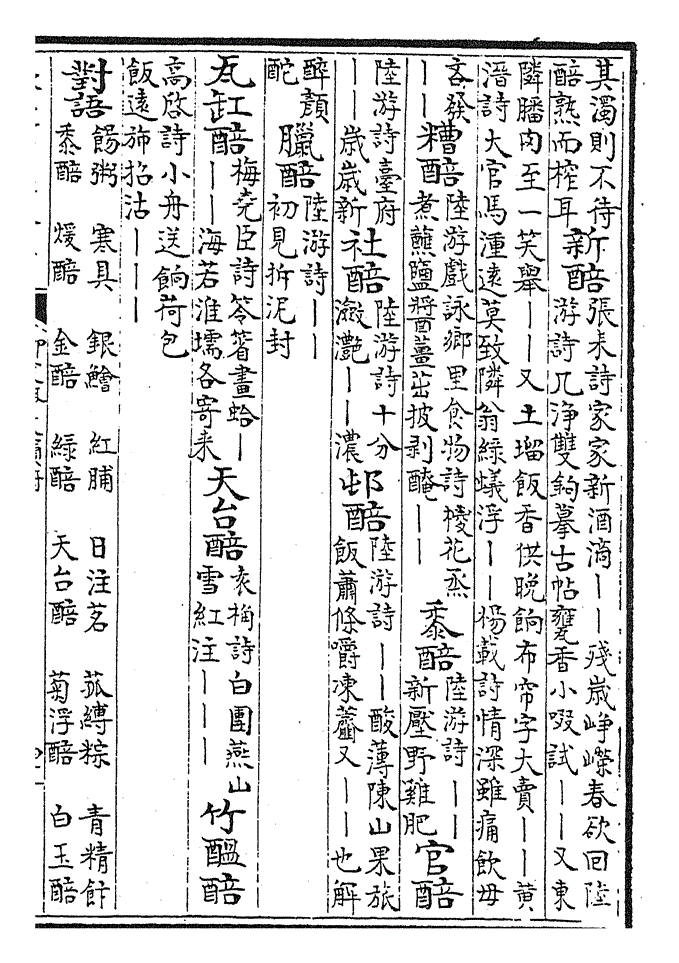 其濁則不待
醅熟而榨耳
新醅
張耒詩家家新酒滴丨丨殘歳崢嶸春欲回陸
游詩几浄雙鉤摹古帖甕香小啜試丨丨又東
隣膰肉至一笑舉丨丨又土瑠飯香供晚餉布帘字大賣丨丨黄
溍詩大官馬湩遠莫致隣翁緑蟻浮丨丨楊載詩情深雖痛飲毋
吝發
丨丨
糟醅
陸游戲詠鄉里食物詩棱花烝
煮蘸鹽醬薑茁披剥醃丨丨
黍醅
陸游詩丨丨
新壓野雞肥
官醅
陸游詩臺府
丨丨歳歳新
社醅
陸游詩十分
瀲灔丨丨濃
邨醅
陸游詩丨丨酸薄陳山果旅
飯蕭條嚼凍虀又丨丨也解
醉顔
酡
臘醅
陸游詩丨丨
初見拆泥封
瓦缸醅
梅堯臣詩笭箵畫蛤丨
丨丨海若淮壖各寄来
天台醅
袁桷詩白團燕山
雪紅注丨丨丨
竹醖醅
高啓詩小舟送餉荷包
飯遠斾招沽丨丨丨
對語
餳粥 寒具 銀鱠 紅脯 日注茗 菰縛粽 青精飰
黍醅 煖醅 金醅 緑醅 天台醅 菊浮醅 白玉醅